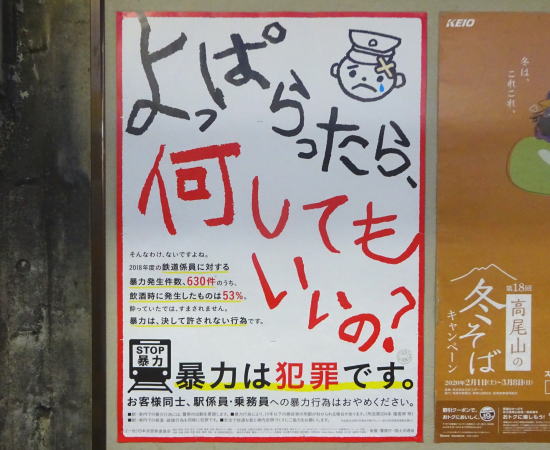 よっぱらったら、
何しても
いいの?
そんなわけ、ないですよね。
2018年度の鉄道係員に対する
暴力発生件数、630件のうち、
飲酒時に発生したものは53%。
酔っていたでは、すまされません。
暴力は、決して許されない行為です。
STOP
暴力
暴力は犯罪です。
お客様同士、駅係員・乗務員への暴力行為はおやめください。
KEIO
冬は、
これこれ。
第18回
高尾山の
冬そば
キャンペーン
2020年2月1日(土)~3月8日(日)
割引クーポンで、
おトクにおいしく。